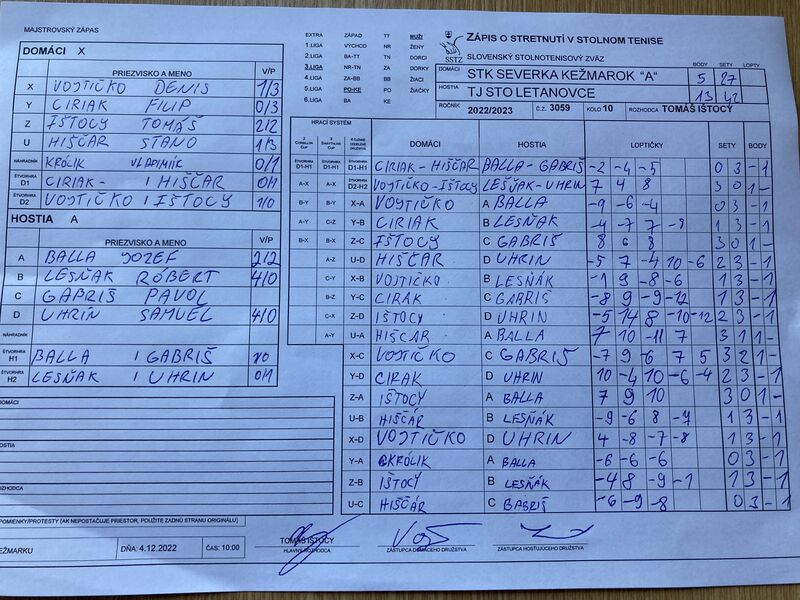 MAJSTROVSKÝ ZÁPAS
EXTRA ZÁPAD TT MUŽI
1.LIGA VÝCHOD NR ŽENY
2.LIGA BA-TT TN DORCI
3.LIGA NR-TN ZA DORKY
4.LIGA ZA-BB BB ŽIACI
5.LIGA PO-KE PO ŽIAČKY
6.LIGA BA KE
SSTZ
ZÁPIS O STRETNUTÍ V STOLNOM TENISE
SLOVENSKÝ STOLNOTENISOVÝ ZVÄZ
BODY SETY LOPTY
DOMÁCI STK SEVERKA KEŽMAROK "A" 5 27
HOSTIA TJ STO LETANOVCE 13 42
ROČNÍK 2022/2023 č.z. 3059 KOLO 10 ROZHODCA TOMÁŠ IŠTOCÝ
DOMÁCI X
PRIEZVISKO A MENO V/P
X VOJTIČKO DENIS 1/3
Y CIRIAK FILIP 0/3
Z IŠTOCY TOMÁŠ 2/2
U HIŠČAR STANO 1/3
NÁHRADNÍK KRÓLIK VLADIMÍR 0/1
ŠTVORHRA D1 CIRIAK- / HIŠČAR 0/1
ŠTVORHRA D2 VOJTIČKO / IŠTOCY 1/0
HOSTIA A
PRIEZVISKO A MENO V/P
A BALLA JOZEF 2/2
B LESŇAK RÓBERT 4/0
C GABRIŠ PAVOL
D UHRÍN SAMUEL 4/0
NÁHRADNÍK
ŠTVORHRA H1 BALLA / GABRIŠ 1/0
ŠTVORHRA H2 LESŇAK / UHRIN 0/1
HRACÍ SYSTÉM DOMÁCI HOSTIA LOPTIČKY SETY BODY
ŠTVORHRA D1-H1 ŠTVORHRA D1-H1 ŠTVORHRA D1-H1 CIRIAK-HIŠČAR BALLA-GABRIŠ -2 -4 -5 0 3 -1
A-X A-X ŠTVORHRA D2-H2 VOJTIČKO-IŠTOCY LEŠŇAK-UHRIN 7 4 8 3 0 1 -
B-Y B-Y X-A VOJTIČKO A BALLA -9 -6 -4 0 3 -1
A-Y C-Z Y-B CIRIAK B LESNAK -4 -7 7 -8 1 3 -1
B-X B-X Z-C IŠTOCY C GABRIŠ 8 6 8 3 0 1 -
A-Z U-D HIŠČAR D UHRIN -5 7 -4 10 -6 2 3 -1
C-Y X-B VOJTIČKO B LESŇÁK -1 9 -8 -6 1 3 -1
B-Z Y-C CIRAK C GABRIŠ -8 9 -9 -12 1 3 -1
C-X Z-D IŠTOCY D UHRIN -5 14 8 -10 -12 2 3 -1
A-Y U-A HIŠCAR A BALLA 7 10 -11 7 3 1 1 -
X-C VOJTIČKO C GABRIŠ -7 9 6 7 5 3 2 1 -
Y-D CIRAK D UHRIN 10 -4 10 -6 -4 2 3 -1
Z-A IŠTOCY A BALLA 7 9 10 3 0 1 -
U-B HIŠČÁR B LESŇÁK -9 -6 8 -7 1 3 -1
X-D VOJTIČKO D UHRIN 4 -8 -7 -8 1 3 -1
Y-A KRÓLIK A BALLA -6 -6 -6 0 3 -1
Z-B IŠTOCY B LESŇÁK -4 8 -9 -1 1 3 -1
U-C HIŠČÁR C GABRIŠ -6 -9 -8 0 3 -1
DOMÁCI
HOSTIA
ROZHODCA
POMIENKY/PROTESTY (AK NEPOSTAČUJE PRIESTOR, POUŽITE ZADNÚ STRANU ORIGINÁLU)
KEŽMARKU DŇA: 4.12.2022 ČAS: 10:00
TOMÁŠ IŠTOCÝ
HLAVNÝ ROZHODCA ZÁSTUPCA DOMÁCEHO DRUŽSTVA ZÁSTUPCA HOSŤUJÚCEHO DRUŽSTVA